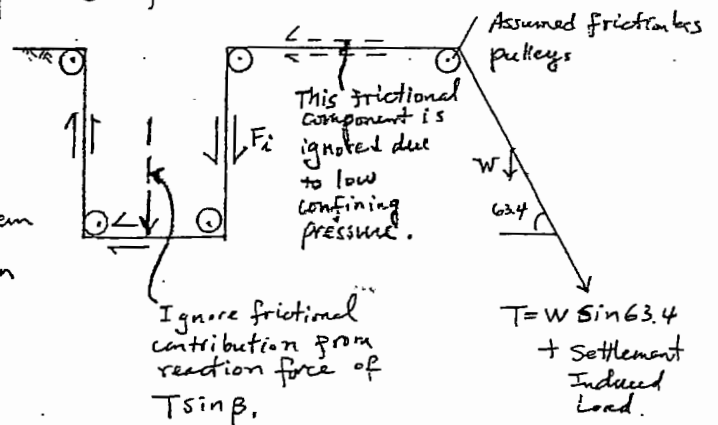 Assumed frictionless
pulleys
This frictional
component is
ignored due
to low
confining
pressure.
Fi
W
63.4
Ignore frictional
contribution from
reaction force of
T sin β.
T = W Sin 63.4
+ Settlement
Induced
Load.